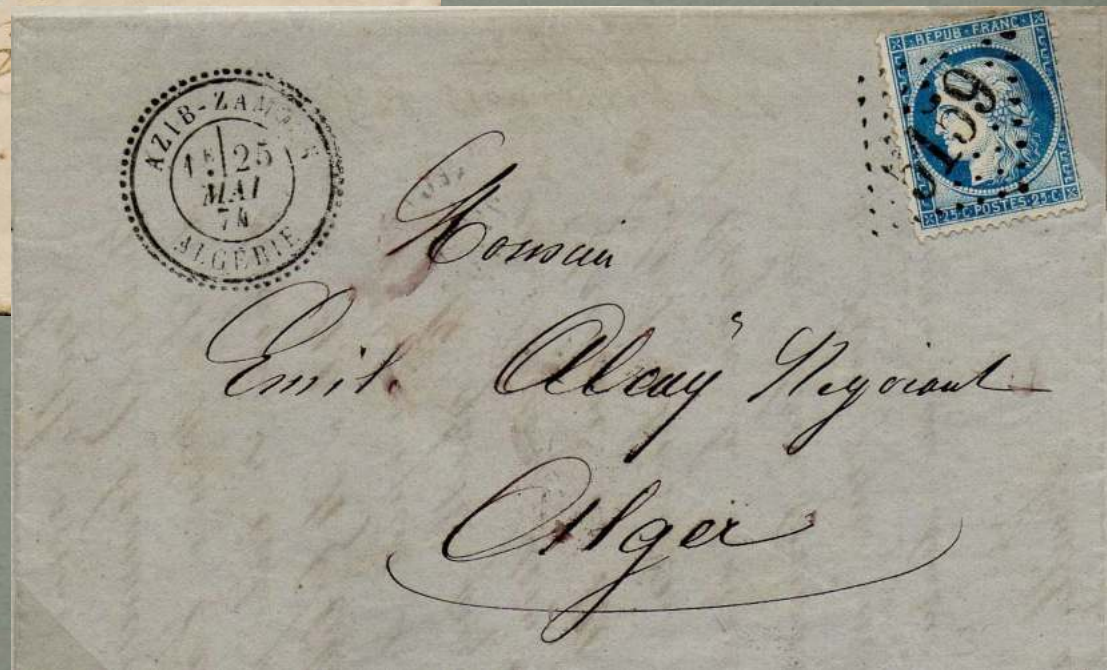 AZIB-ZAM
1E 25
MAI
74
ALGÉRIE
REPUB·FRANC
159
25·C·POSTES·25·C
Monsieur
Emile Négociant
Alger